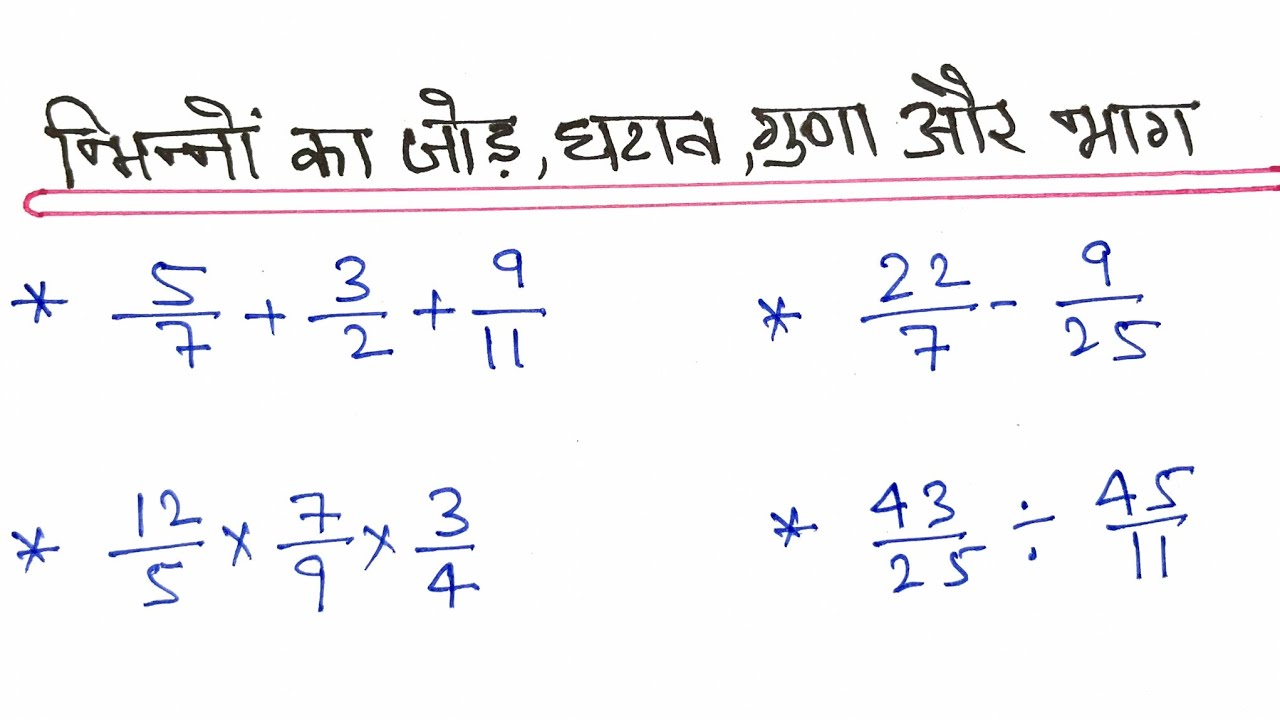 भिन्नों का जोड़, घटाव, गुणा और भाग
* 5/7 + 3/2 + 9/11
* 22/7 - 9/25
* 12/5 × 7/9 × 3/4
* 43/25 ÷ 45/11